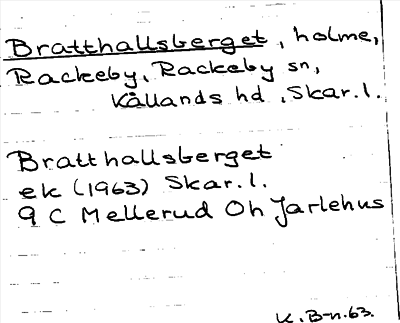 Bratthallsberget, holme,
Rackeby, Rackeby sn,
Kållands hd, Skar.l.
Bratthallsberget
ek (1963) Skar.l.
9 C Mellerud Öh Jarlehus
K.B-n.63.